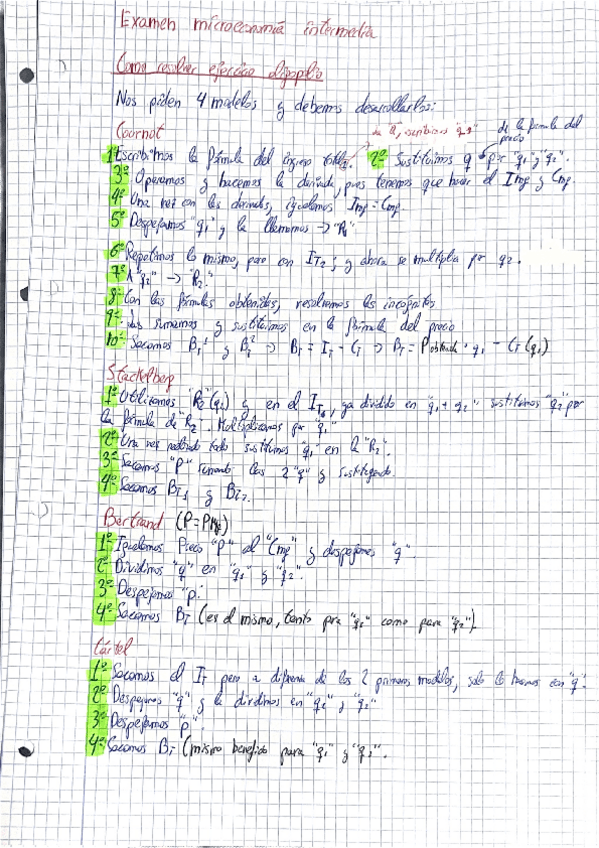 Examen microeconomía intermedia
Como resolver ejercicio oligopolio
Nos piden 4 modelos y debemos desarrollarlos:
Cournot
1º Escribimos la fórmula del ingreso total. 2º Sustituimos q por "q1" y "q2".
de la fórmula del precio
3º Operamos y hacemos la derivada, pues tenemos que hacer el Img y Cmg
4º Una vez con las derivadas, igualamos Img = Cmg.
5º Despejamos "q1" y la llamamos → "R1"
6º Repetimos lo mismo, pero con IT2; y ahora se multiplica por q2.
7º A "q2" → "R2."
8º Con las fórmulas obtenidas, resolvemos las incógnitas
9º Las sumamos y sustituimos en la fórmula del precio
10º Sacamos BT1 y BT2 → BT = IT - CT → BT = P obtenida · q1 - CT (q1)
Stackelberg
1º Utilizamos "R2" (q2) y en el IT1, ya dividido en "q1 + q2" sustituimos "q2" por
la fórmula de "R2". Multiplicamos por "q1"
2º Una vez realizado todo sustituimos "q1" en la "R2".
3º Sacamos "P" sumando las 2 "q" y sustituyendo.
4º Sacamos BT1 y BT2.
Bertrand (P=Cmg)
1º Igualamos Precio "P" al "Cmg" y despejamos "q".
2º Dividimos "q" en "q1" y "q2".
3º Despejamos "p".
4º Sacamos BT (es el mismo, tanto para "q1" como para "q2").
Cártel
1º Sacamos el IT pero a diferencia de los 2 primeros modelos, solo lo hacemos en "q".
2º Despejamos "q" y la dividimos en "q1" y "q2"
3º Despejamos "p".
4º Sacamos BT (mismo beneficio para "q1" y "q2".